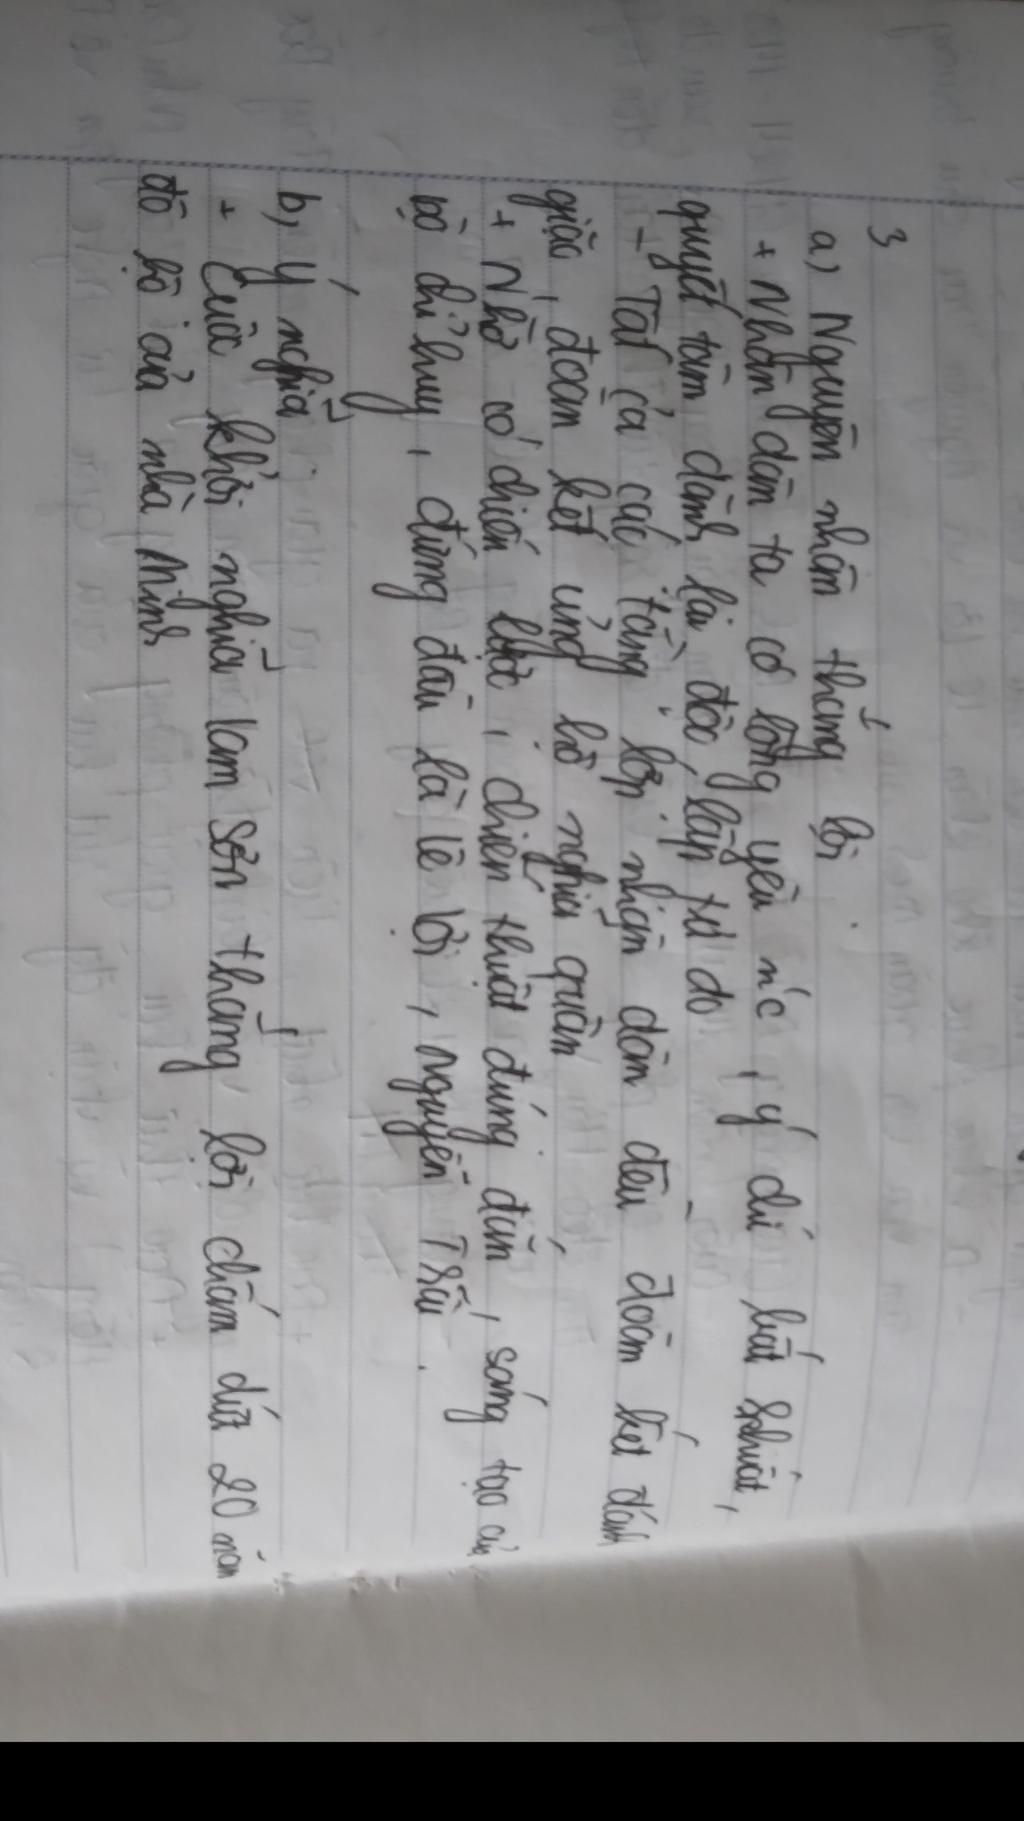 3
a) Nguyên nhân thắng lợi
+ Nhân dân ta có lòng yêu nc, ý chí bất khuất,
quyết tâm dành lại độc lập tự do
- Tất cả các tầng lớp nhân dân đều đoàn kết đánh
giặc, đoàn kết ủng hộ nghĩa quân
+ Nhờ có chiến lược, chiến thuật đúng đắn, sáng tạo của
bộ chỉ huy, đứng đầu là Lê Lợi, Nguyễn Trãi.
b, Ý nghĩa
+ Cuộc khởi nghĩa lam sơn thắng lợi chấm dứt 20 năm
đô hộ của nhà Minh